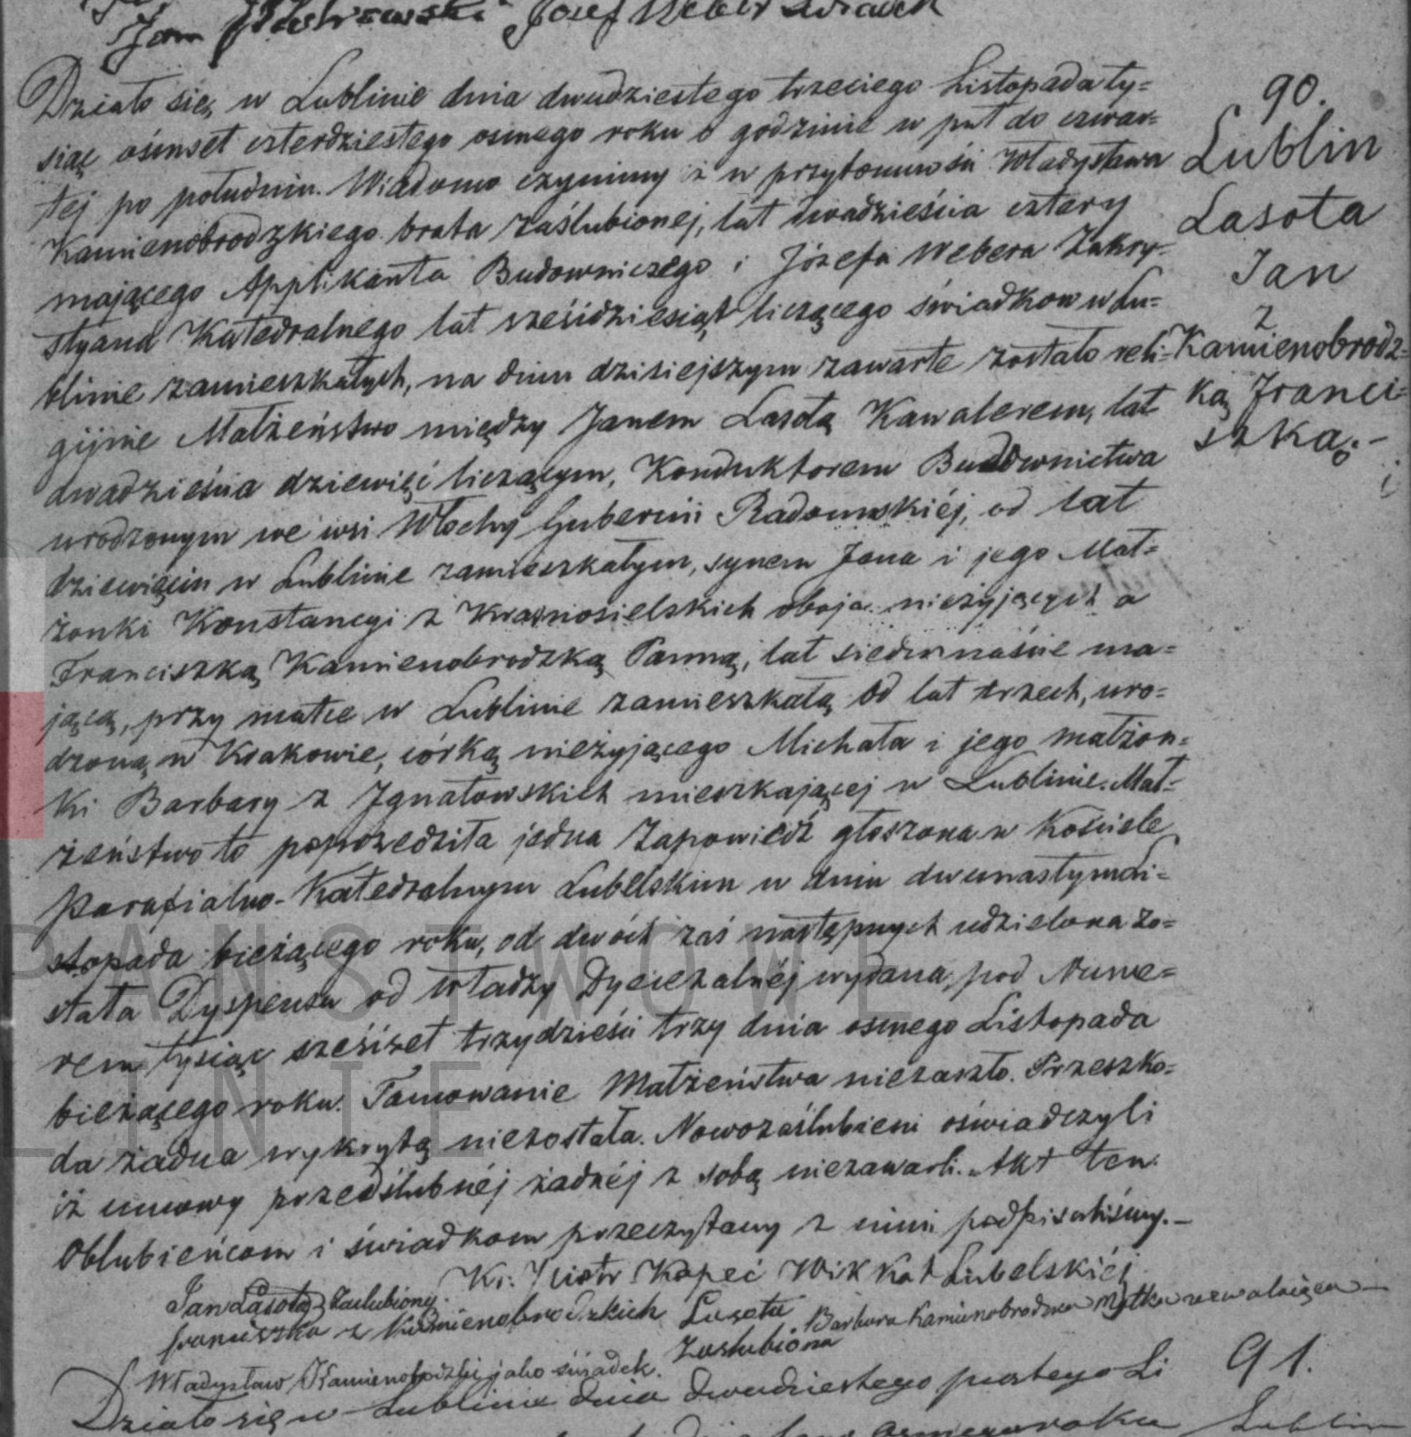 Jan Piotrowski Josef Weber Swiadek
Działo się w Lublinie dnia dwudziestego trzeciego Listopada ty=
siąc ośmset czterdziestego osmego roku o godzinie w puł do czwar=
tej po południu. Wiadomo czynimy iż w przytomności Władysława
Kamienobrodzkiego brata zaślubionej, lat dwadzieścia cztery
mającego Applikanta Budowniczego i Józefa Webera Zakry=
styana Katedralnego lat sześćdziesiąt liczącego świadkow w Lu=
blinie zamieszkałych, na dniu dzisiejszym zawarte zostało reli=
gijne Małżeństwo między Janem Lasotą Kawalerem, lat
dwadzieścia dziewięć liczącym, Konduktorem Budownictwa
urodzonym we wsi Włochy Gubernii Radomskiéj, od lat
dziewięciu w Lublinie zamieszkałym, synem Jana i jego Mał=
żonki Konstancyi z Krasnosielskich oboja nieżyjących a
Franciszką Kamienobrodzką Panną, lat siedmnaście ma=
jącą, przy matce w Lublinie zamieszkałą od lat trzech, uro=
dzoną w Krakowie, córką nieżyjącego Michała i jego małżon=
ki Barbary z Ignatowskich mieszkającej w Lublinie. Mał=
żeństwo to poprzedziła jedna Zapowiedź głoszona w Kościele
Parafialno-Katedralnym Lubelskim w dniu dwunastym Li=
stopada bieżącego roku, od dwóch zaś następnych udzielona zo=
stała Dyspensa od Władzy Dyecezalnéj wydana, pod Nume=
rem tysiąc sześćset trzydzieści trzy dnia osmego Listopada
bieżącego roku. Tamowanie Małżeństwa niezaszło. Przeszko=
da żadna wykrytą niezostała. Nowozaślubieni oświadczyli
iż umowy przedślubnéj żadnéj z sobą niezawarli. Akt ten
Oblubieńcom i świadkom przeczytany z nimi podpisaliśmy.—
Kś: Piotr Kopeć Wik Kat Lubelskiéj
Jan Lasota Zaslubiony.
Franciszka z Kamienobrodzkich Lasota
Zaslubiona
Barbara Kamienobrodzka Matka zezwalaiąca
Władysław Kamienobrodzki jako świadek.
90.
Lublin
Lasota
Jan
z
Kamienobrodz=
ką Franci=
szką.—
Działo się w Lublinie dnia dwudziestego piątego Li
91.
Lublin
PAŃSTWOWE
LINIE